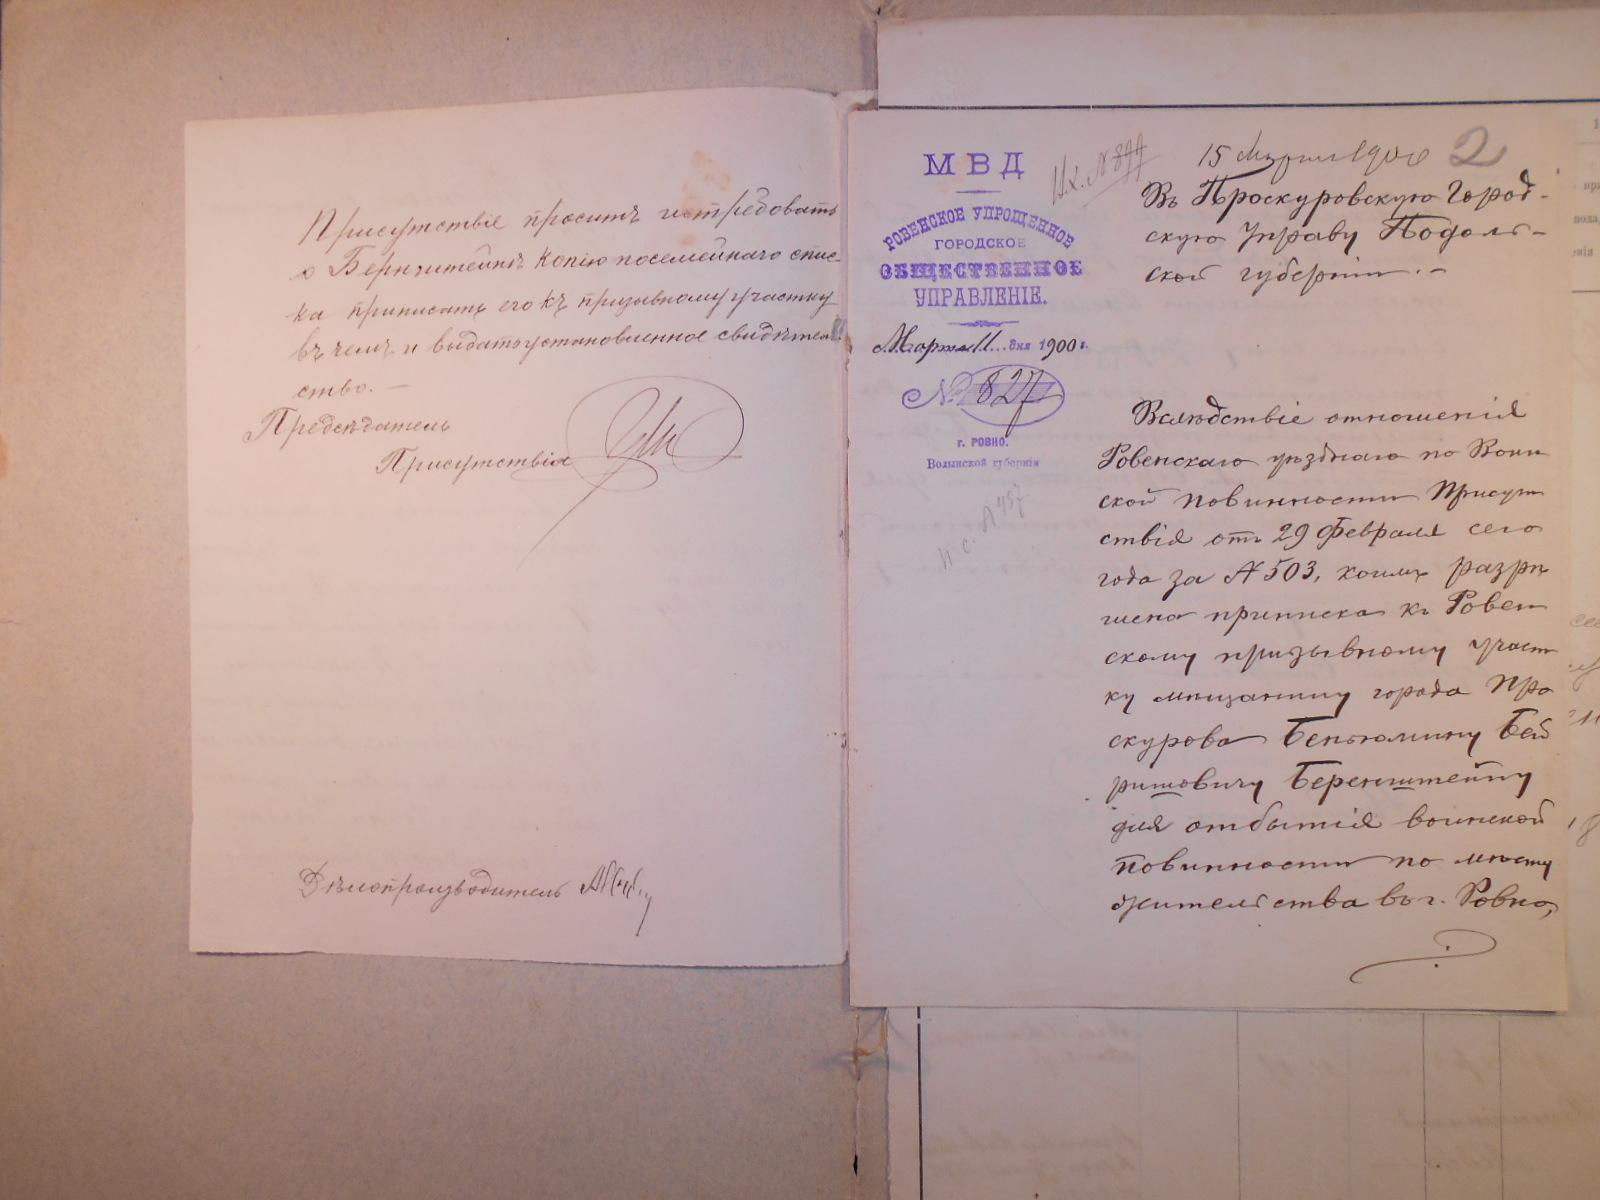 Присутствіе проситъ истребовать
о Бернштейнѣ копію посемейнаго спис-
ка приписать его къ призывному участку
въ чемъ и выдать установленное свидѣтель
ство. —
Предсѣдатель
Присутствія
Дѣлопроизводитель
МВД
РОВЕНСКОЕ УПРОЩЕННОЕ
ГОРОДСКОЕ
ОБЩЕСТВЕННОЕ
УПРАВЛЕНІЕ.
Марта 11 дня 1900 г.
№ 827
г. РОВНО.
Волынской губерніи
п. с. № 457
Вх. № 877
15 Марта 1900 2
Въ Проскуровскую Город-
скую Управу Подоль-
ской губерніи. —
Вслѣдствіе отношенія
Ровенскаго уѣзднаго по Воин
ской повинности Присут
ствія отъ 29 Февраля сего
года за № 503, коимъ разрѣ
шена приписка къ Ровен
скому призывному участ
ку мѣщанину города Про
скурова Беньюмину Бей
ришовичу Беренштейну
для отбытія воинской
повинности по мѣсту
жительства въ г. Ровно,